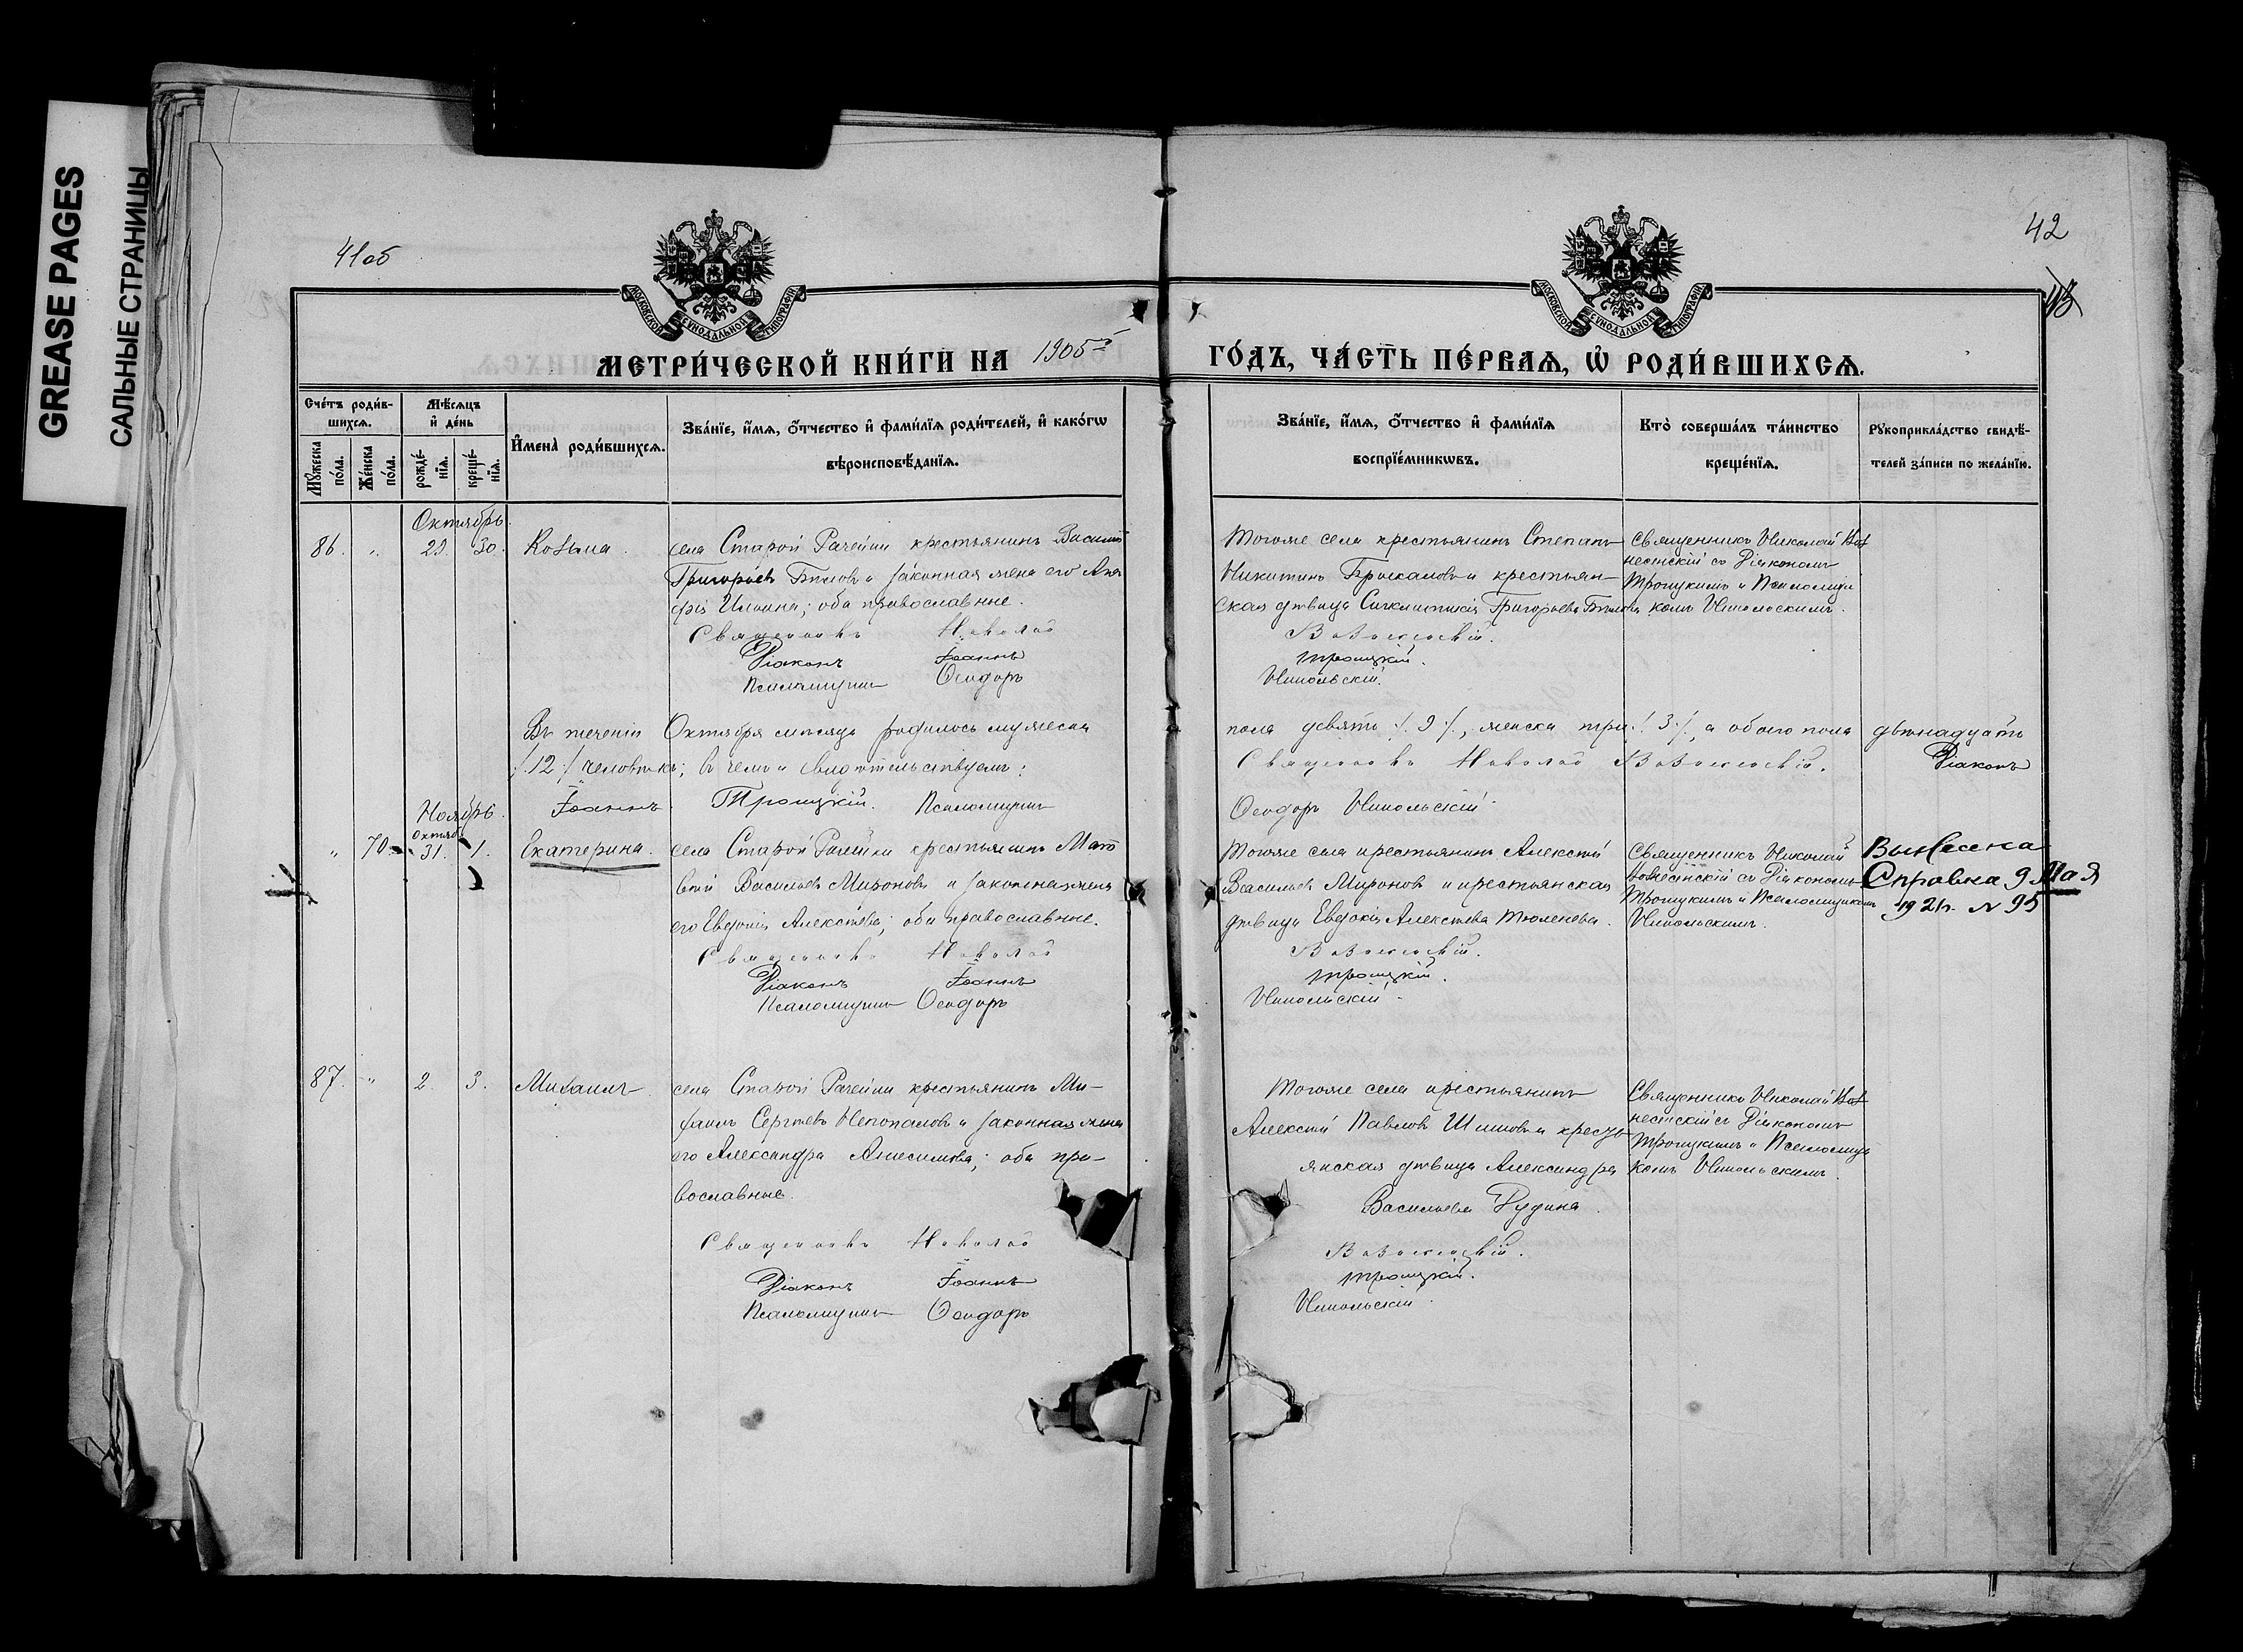 GREASE PAGES
САЛЬНЫЕ СТРАНИЦЫ
41об
42
43
МОСКОВСКОЙ СѴНОДАЛЬНОЙ ТИПОГРАФІИ
МОСКОВСКОЙ СѴНОДАЛЬНОЙ ТИПОГРАФІИ
МЕТРИ́ЧЕСКОЙ КНИ́ГИ НА 1905й ГО́ДЪ, ЧА́СТЬ ПЕ́РВАѦ, Ѡ҆ РОДИ́ВШИХСѦ.
Сче́тъ роди́вшихсѧ.
Мꙋ́жеска по́ла.
Же́нска по́ла.
Мѣ́сѧцъ и҆ де́нь
рожде́нїѧ.
креще́нїѧ.
И҆мена̀ роди́вшихсѧ.
Зва́нїе, и҆́мѧ, ѻ҆́тчество и҆ фами́лїѧ роди́телей, и҆ како́гѡ
вѣроисповѣ́данїѧ.
Зва́нїе, и҆́мѧ, ѻ҆́тчество и҆ фами́лїѧ
воспрїе́мникѡвъ.
Кто̀ соверша́лъ та́инство
креще́нїѧ.
Рꙋкоприкла́дство свидѣ́-
телей за́писи по жела́нїю.
Октябрь.
86. " 29. 30.
села Старой Рачейки крестьянинъ Василій
Григорьевъ Бѣловъ и законная жена его
Ильина; оба православные.
Священникъ Николай
Діаконъ Іоаннъ
Псаломщикъ Ѳеодоръ
Тогоже села крестьянинъ Степанъ
Никитинъ и крестьян-
ская дѣвица Григорьева Бѣлова
Вознесенскій.
Троицкій.
Никольскій.
Священникъ Николай Воз
несенскій съ Діакономъ
Троицкимъ и Псаломщи
комъ Никольскимъ.
Въ теченіи Октября мѣсяца родилось мужеска пола девять /9/, женска три /3/, а обоего пола двѣнадцать
/12/ человѣкъ; въ чемъ и свидѣтельствуемъ: Священникъ Николай Вознесенскій. Діаконъ
Іоаннъ Троицкій. Псаломщикъ Ѳеодоръ Никольскій.
Ноябрь.
" 70. Октяб. 31. 1. Екатерина.
села Старой Рачейки крестьянинъ Мат
вей Васильевъ Мироновъ и законная жена
его Евдокія Алексѣева; оба православные.
Священникъ Николай
Діаконъ Іоаннъ
Псаломщикъ Ѳеодоръ
Тогоже села крестьянинъ Алексѣй
Васильевъ Мироновъ и крестьянская
дѣвица Евдокія Алексѣева Тюленева.
Вознесенскій.
Троицкій.
Никольскій.
Священникъ Николай
Вознесенскій съ Діакономъ
Троицкимъ и Псаломщикомъ
Никольскимъ.
Справка 9 Мая
192 г. № 95
87. " 2. 3. Михаилъ
села Старой Рачейки крестьянинъ Ми-
хаилъ Сергѣевъ и законная жена
его Александра Анисимова; оба пра-
вославные.
Священникъ Николай
Діаконъ Іоаннъ
Псаломщикъ Ѳеодоръ
Тогоже села крестьянинъ
Алексѣй Павловъ и кресть-
янская дѣвица Александра
Васильева
Вознесенскій.
Троицкій.
Никольскій.
Священникъ Николай Воз
несенскій съ Діакономъ
Троицкимъ и Псаломщи
комъ Никольскимъ.